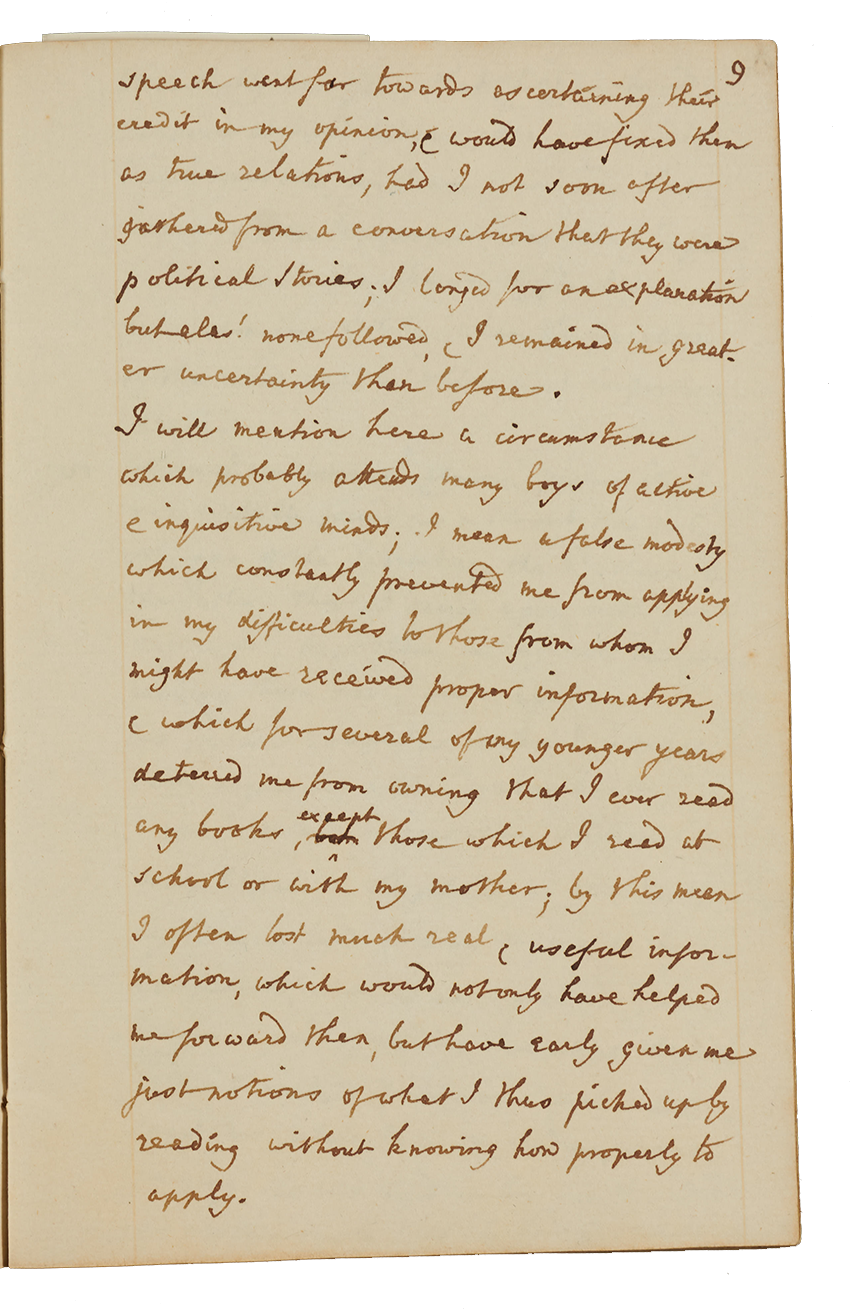 9
speech went far towards ascertaining their
credit in my opinion, & would have fixed them
as true relations, had I not soon after
gathered from a conversation that they were
political stories; I longed for an explanation
but alas! none followed, & I remained in great-
er uncertainty than before.
I will mention here a circumstance
which probably attends many boys of active
& inquisitive minds; I mean a false modesty
which constantly prevented me from applying
in my difficulties to those from whom I
might have received proper information,
& which for several of my younger years
deterred me from owning that I ever read
any books, except those which I read at
school or with my mother; by this mean
I often lost much real & useful infor-
mation, which would not only have helped
me forward then, but have early given me
just notions of what I thus picked up by
reading without knowing how properly to
apply.